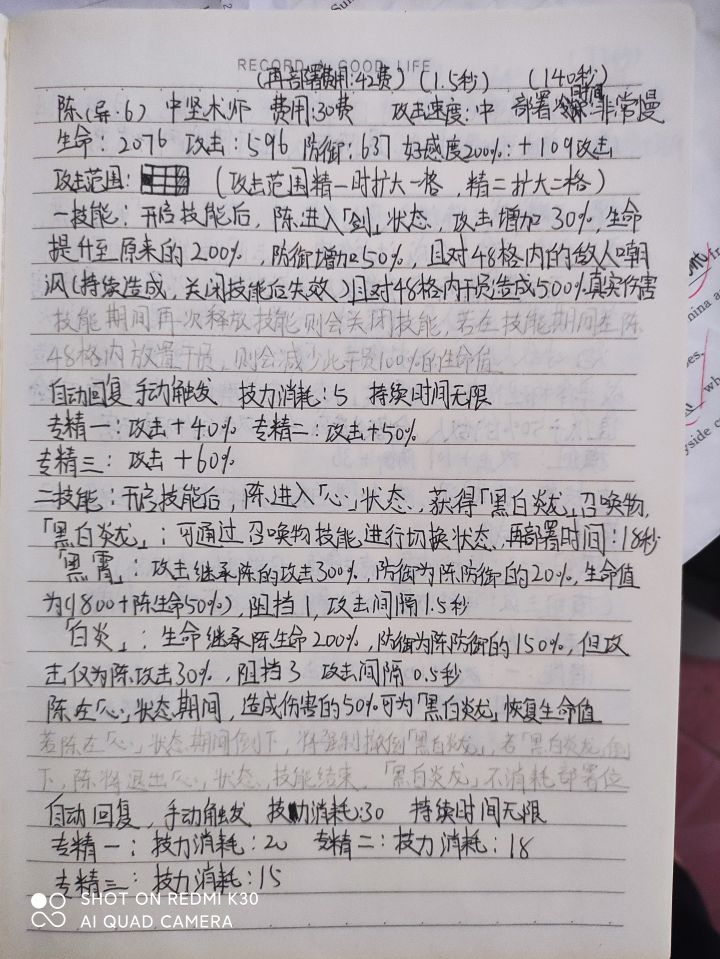 RECORD A GOOD LIFE
(再部署费用:42费) (1.5秒) (140秒)
陈(异·6) 中坚术师 费用:30费 攻击速度:中 部署时间:非常慢
生命:2076 攻击:596 防御:637 好感度200%:+109攻击
攻击范围: (攻击范围精一时扩大一格,精二扩大二格)
一技能:开启技能后,陈进入「剑」状态,攻击增加30%,生命
提升至原来的200%,防御增加50%,且对48格内的敌人嘲
讽(持续造成,关闭技能后失效)且对48格内干员造成500%真实伤害
技能期间再次释放技能则会关闭技能,若在技能期间在陈
48格内放置干员,则会减少此干员100%的生命值
自动回复 手动触发 技力消耗:5 持续时间无限
专精一:攻击+40% 专精二:攻击+50%
专精三:攻击+60%
二技能:开启技能后,陈进入「心」状态,获得「黑白炎龙」召唤物,
「黑白炎龙」:可通过召唤物技能进行切换状态,再部署时间:18秒
「黑霄」:攻击继承陈的攻击300%,防御为陈防御的20%,生命值
为(1800+陈生命50%),阻挡1,攻击间隔1.5秒
「白炎」:生命继承陈生命200%,防御为陈防御的150%,但攻
击仅为陈攻击30%,阻挡3 攻击间隔0.5秒
陈在「心」状态期间,造成伤害的50%可为「黑白炎龙」恢复生命值
若陈在「心」状态期间倒下,将强制撤倒「黑白炎龙」,若「黑白炎龙」倒
下,陈将退出「心」状态,技能结束,「黑白炎龙」不消耗部署位
自动回复,手动触发 技力消耗:30 持续时间无限
专精一:技力消耗:20 专精二:技力消耗:18
专精三:技力消耗:15
SHOT ON REDMI K30
AI QUAD CAMERA